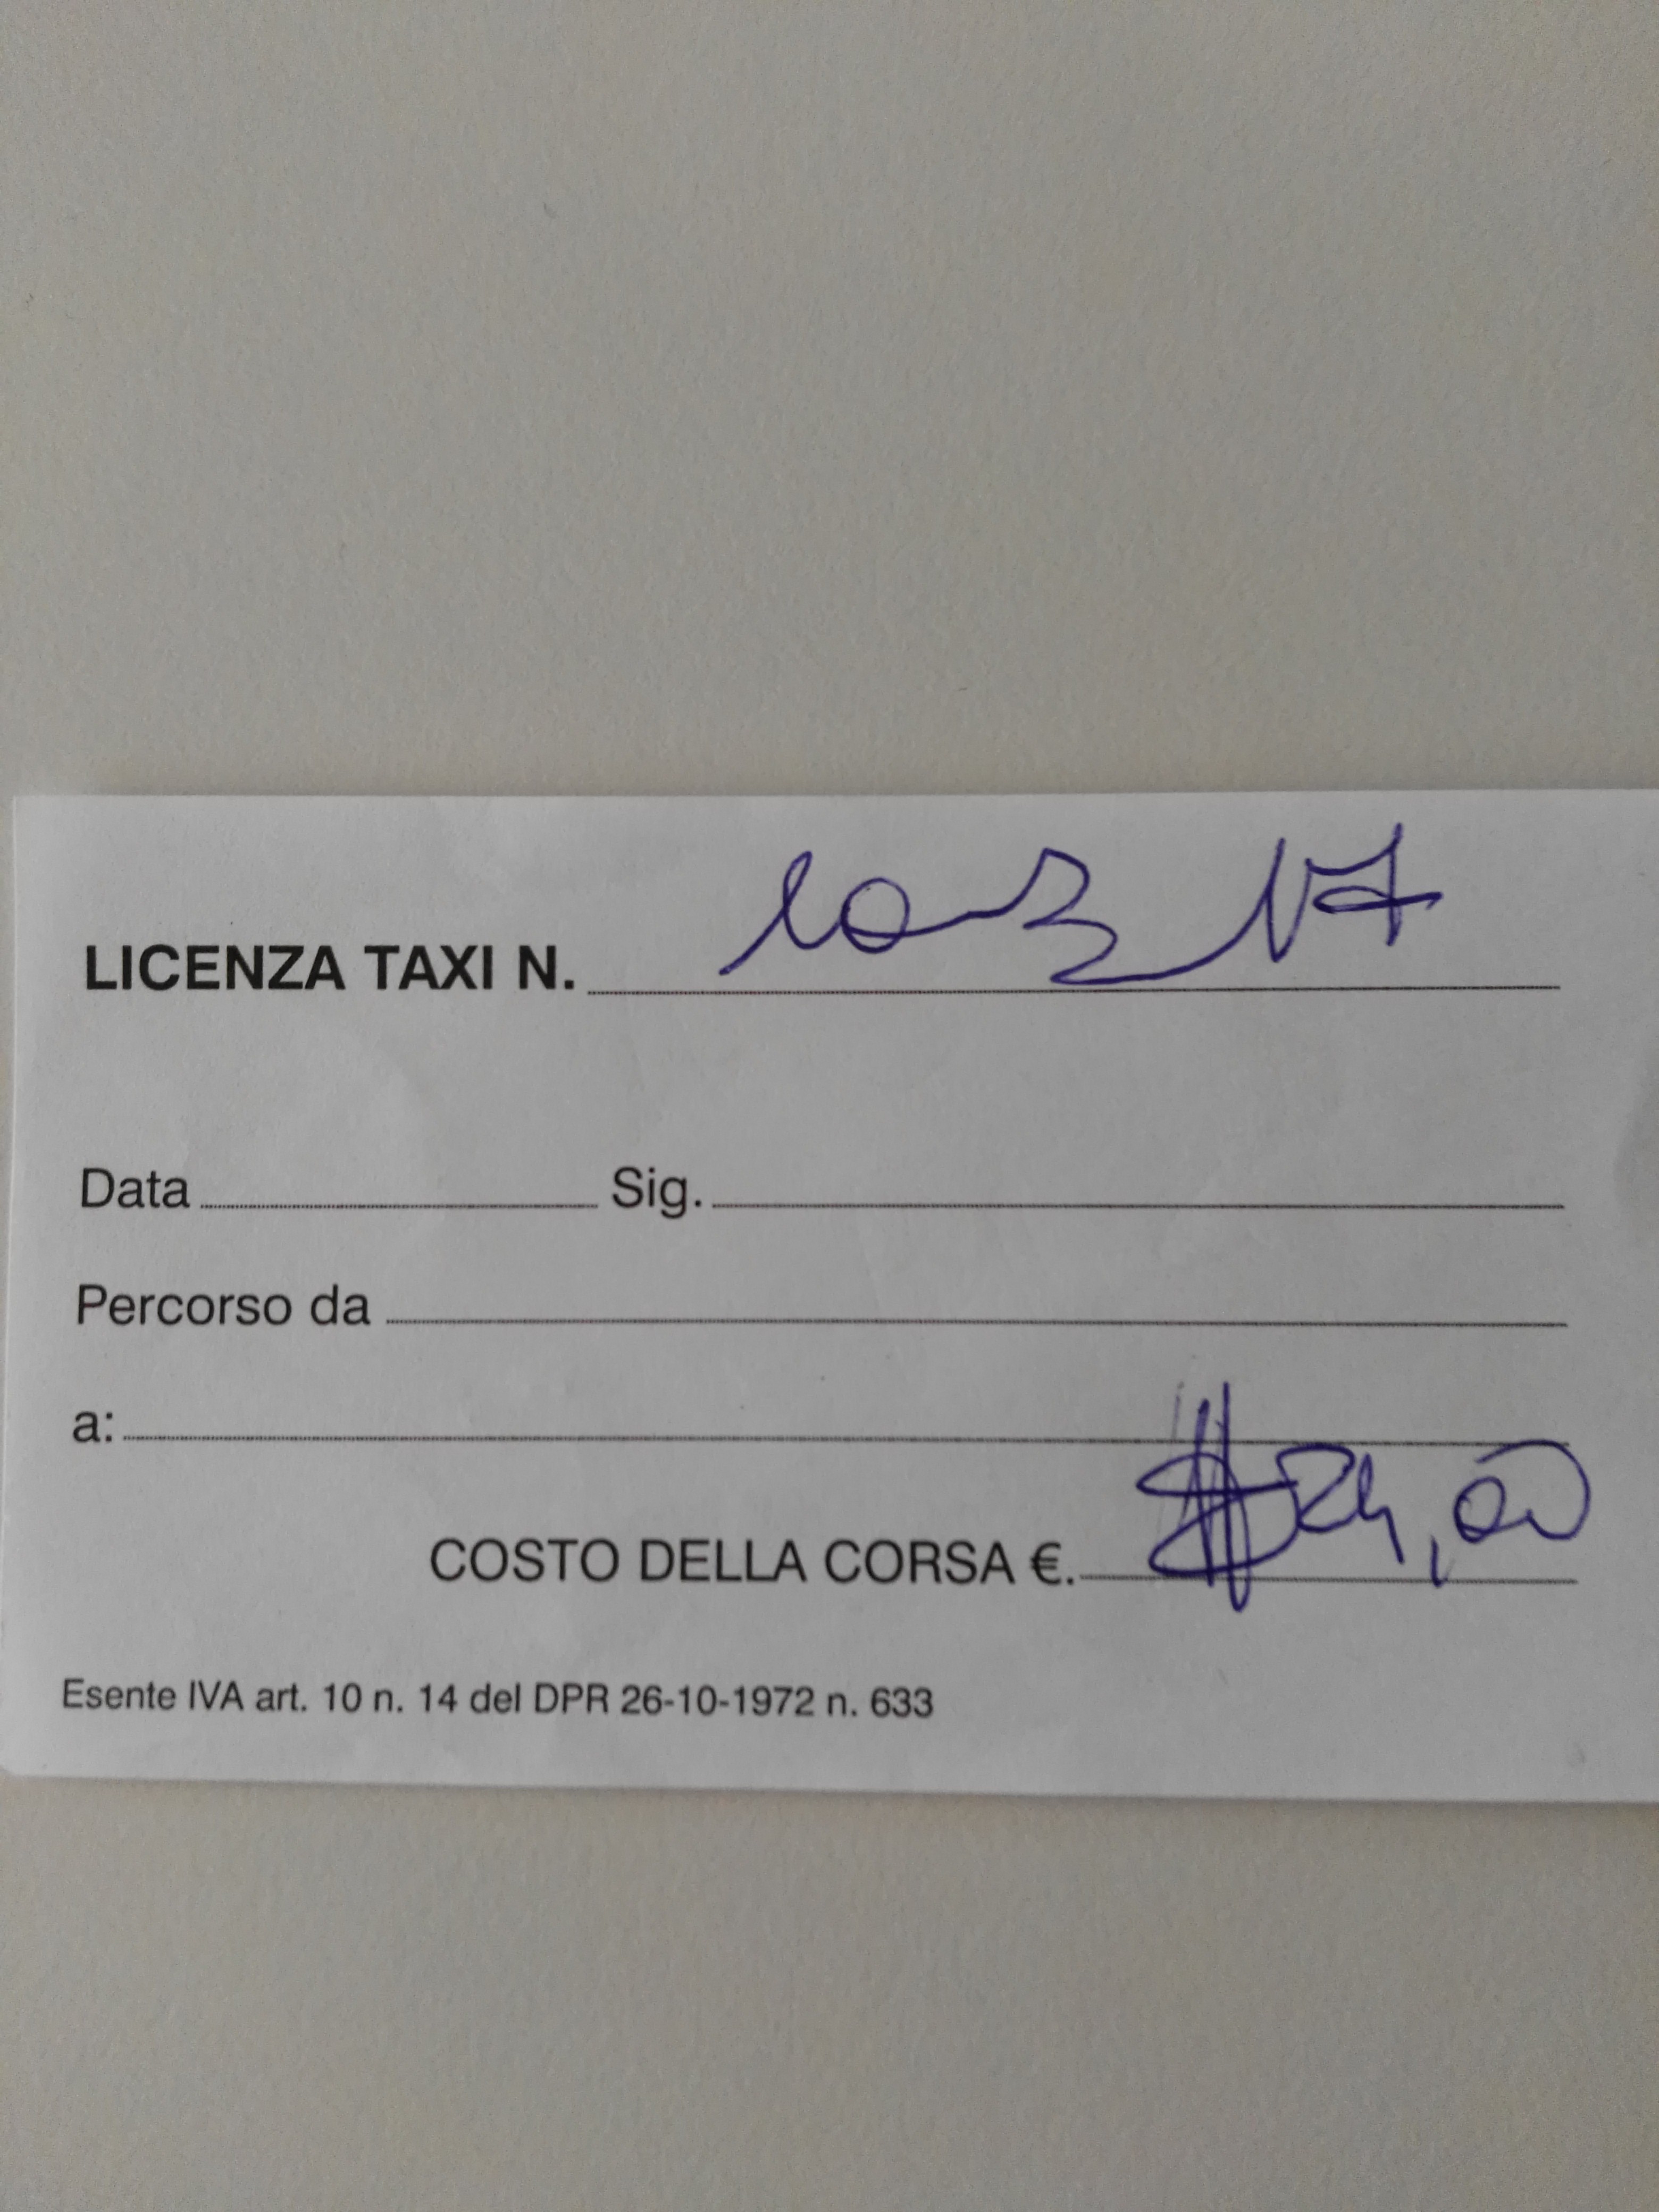 LICENZA TAXI N.
Data Sig.
Percorso da
a:
COSTO DELLA CORSA €. 24,00
Esente IVA art. 10 n. 14 del DPR 26-10-1972 n. 633